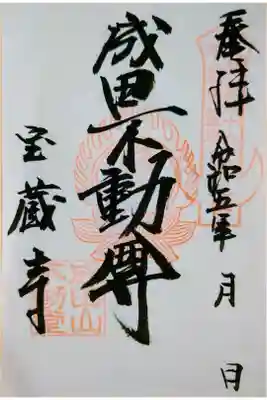 奉拝 令和五年 月 日
成田不動尊
宝蔵寺